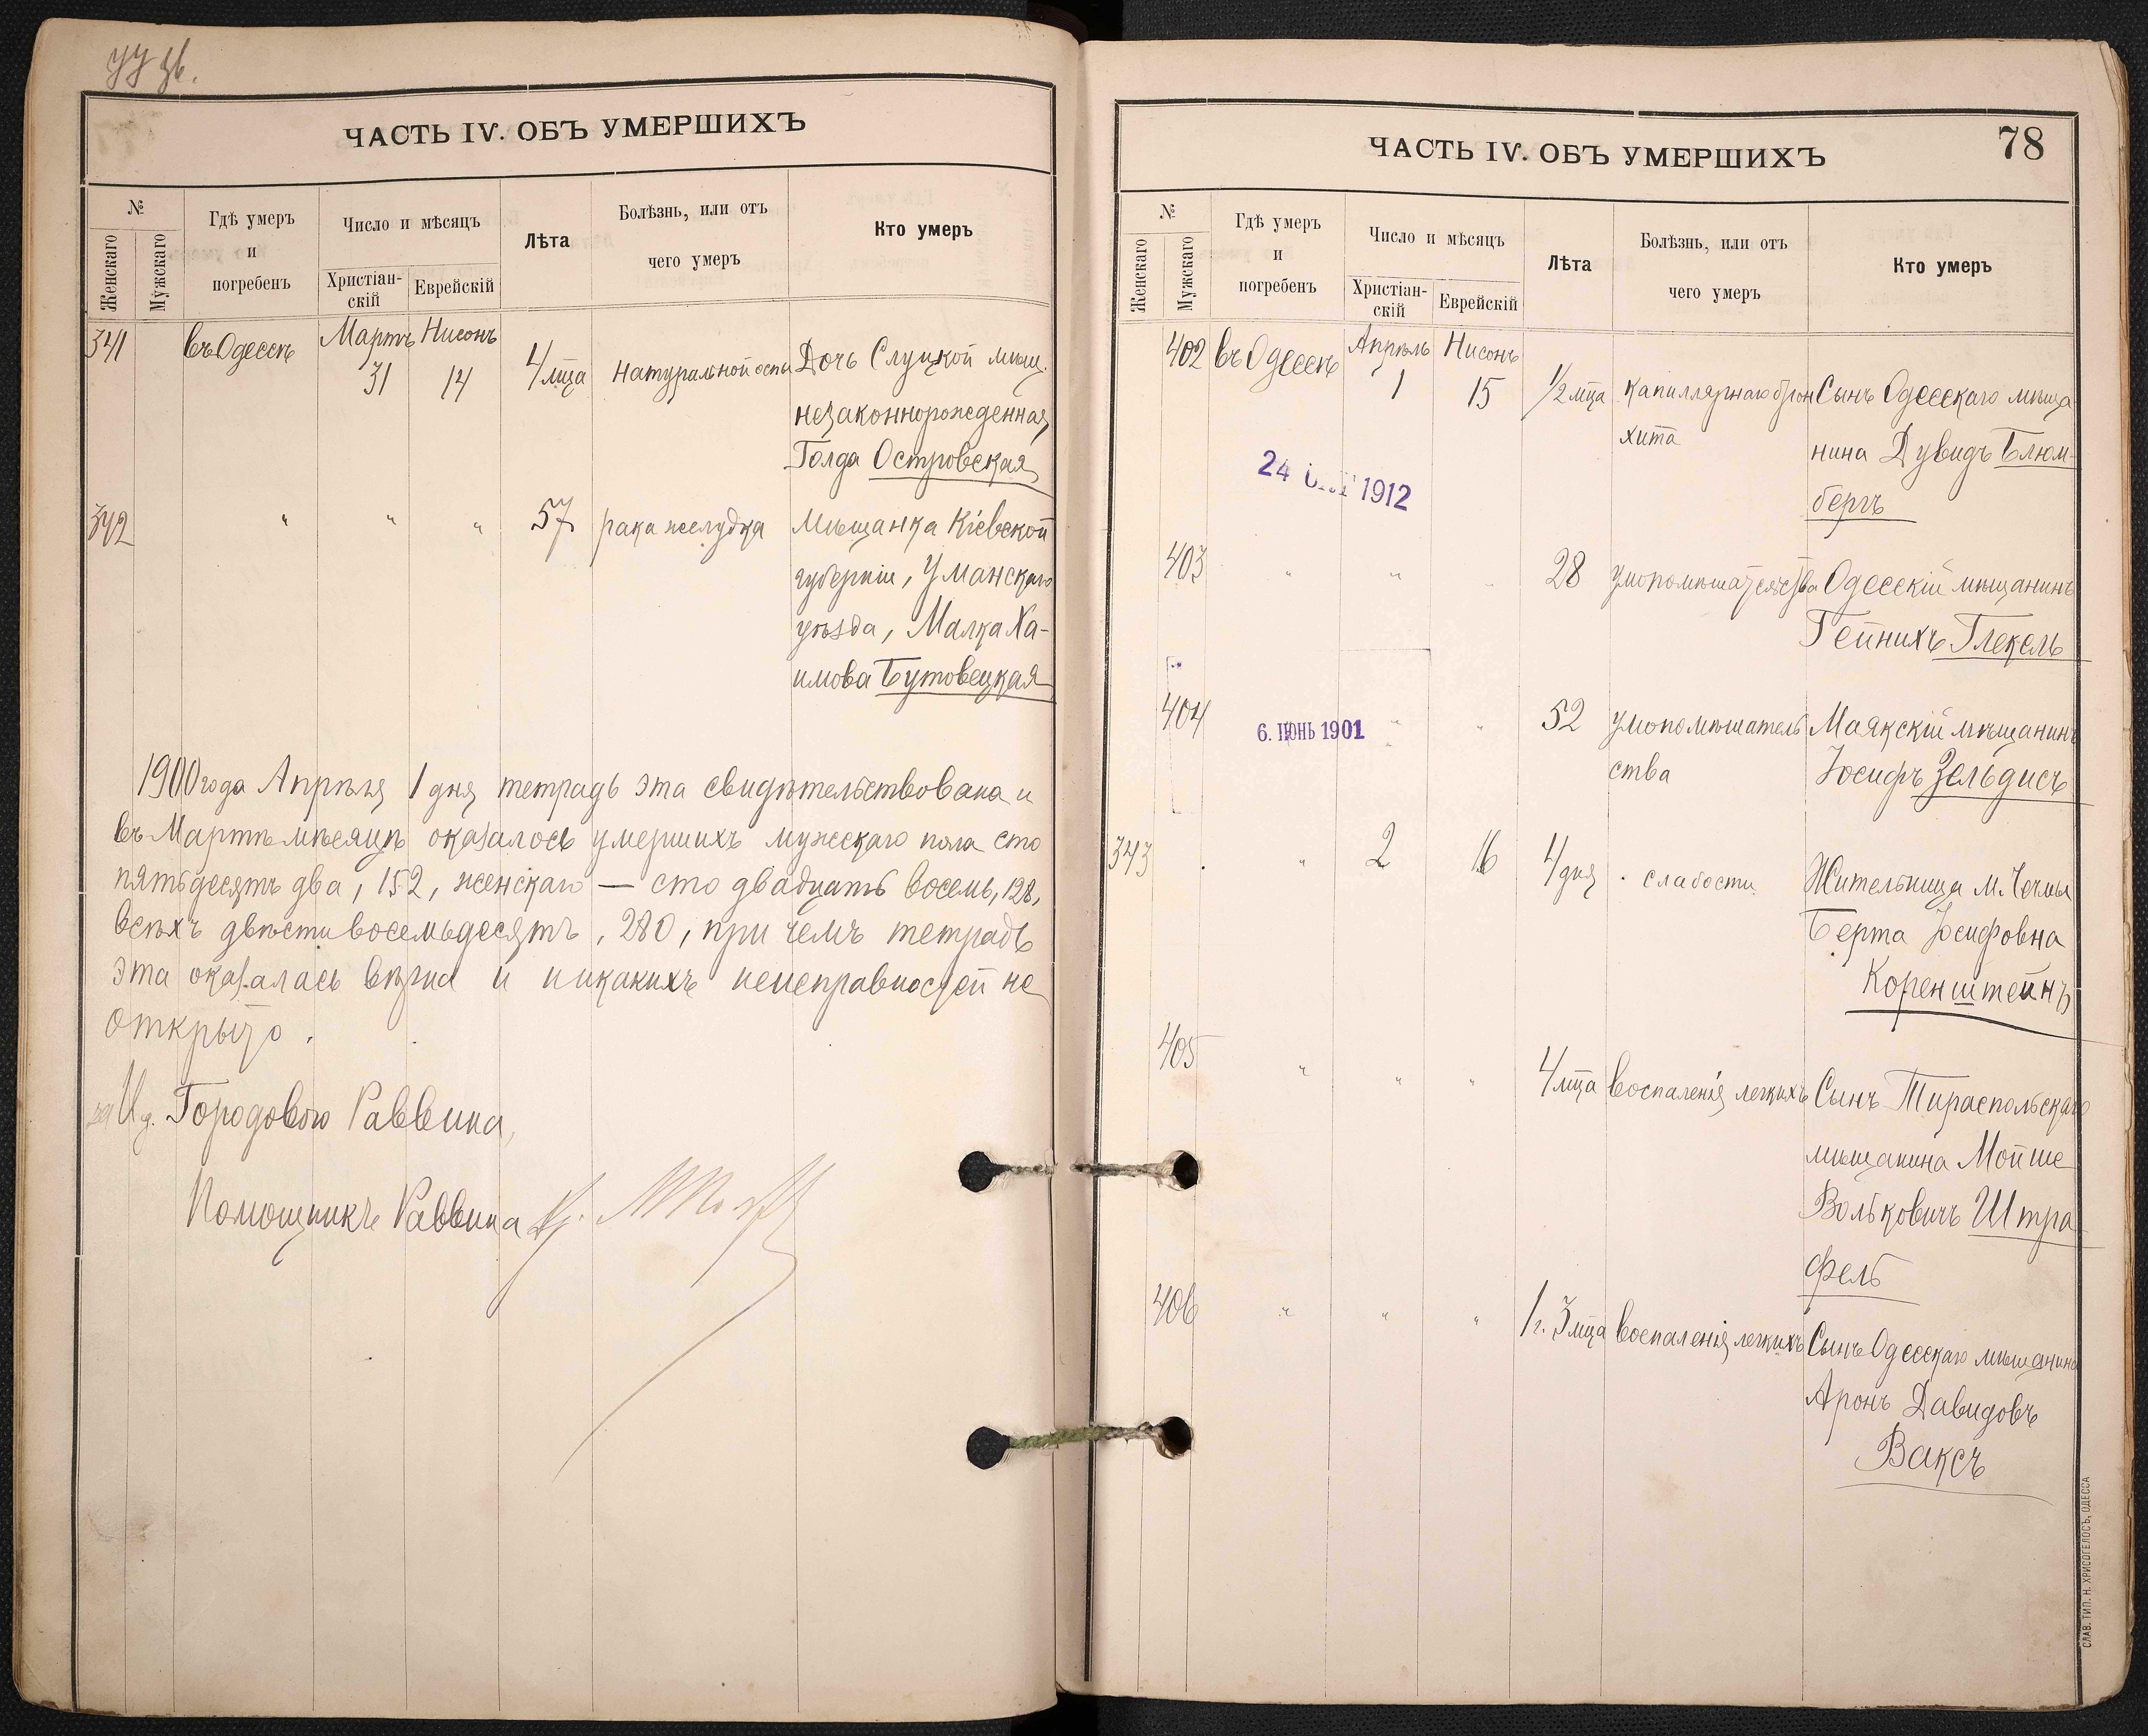 ЧАСТЬ IV. ОБЪ УМЕРШИХЪ
№
Женскаго
Мужскаго
Гдѣ умеръ
и
погребенъ
Число и мѣсяцъ
Христіан-
скій
Еврейскій
Лѣта
Болѣзнь, или отъ
чего умеръ
Кто умеръ
341 въ Одессѣ Мартъ Нисонъ
31 14 4 мца натуральной оспы Дочь Слуцкой мѣщ.
незаконнорожденная
Голда Островская
342 " " " 57 рака желудка Мѣщанка Кіевской
губерніи, Уманскаго
уѣзда, Малка Ха-
имова Бутовецкая
1900 года Апрѣля 1 дня тетрадь эта свидѣтельствована и
въ Мартѣ мѣсяцѣ оказалось умершихъ мужскаго пола сто
пятьдесятъ два, 152, женскаго — сто двадцать восемь, 128,
всѣхъ двѣсти восемьдесятъ, 280, при чемъ тетрадь
эта оказалась вѣрна и никакихъ неисправностей не
открыто.
И. д. Городового Раввина,
Помощникъ Раввина
ЧАСТЬ IV. ОБЪ УМЕРШИХЪ
78
№
Женскаго
Мужскаго
Гдѣ умеръ
и
погребенъ
Число и мѣсяцъ
Христіан-
скій
Еврейскій
Лѣта
Болѣзнь, или отъ
чего умеръ
Кто умеръ
402 въ Одессѣ Апрѣль Нисонъ
1 15 1/2 мца капиллярнаго брон Сынъ Одесскаго мѣща
хита нина Дувидъ Блюм-
24 ОКТ 1912
бергъ
403 " " " 28 умопомѣшательства Одесскій мѣщанинъ
Гейнихъ Глекель
404 6. ІЮНЬ 1901 " " 52 умопомѣшатель Маякскій мѣщанинъ
ства Іосифъ Зельдисъ
343 " 2 16 4 дня слабости Жительница м.
Берта Іосифовна
Коренштейнъ
405 " " " 4 мца воспаленія легкихъ Сынъ Тираспольскаго
мѣщанина Мойше
Вольковичъ Штра
фель
406 " " " 1 г. 3 мца воспаленія легкихъ Сынъ Одесскаго мѣщанина
Аронъ Давидовъ
Ваксъ
СЛАВ. ТИП. Н. ХРИСОГЕЛОСЪ, ОДЕССА